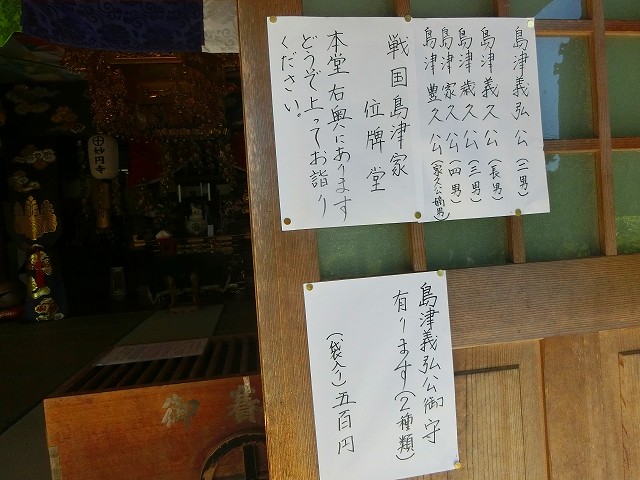 島津義弘公(二男)
島津義久公(長男)
島津歳久公(三男)
島津家久公(四男)
島津豊久公(家久公嫡男)
戦国島津家
位牌堂
本堂右奥にあります
どうぞ上ってお詣り
ください。
島津義弘公御守
有ります(2種類)
(袋入り)五百円
妙円寺
御賽